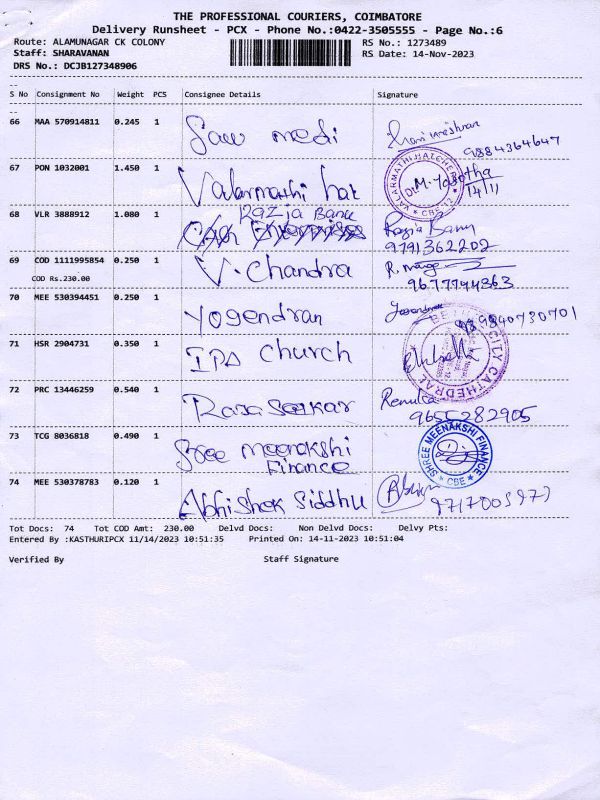 THE PROFESSIONAL COURIERS, COIMBATORE
Delivery Runsheet - PCX - Phone No.:0422-3505555 - Page No.:6
Route: ALAMUNAGAR CK COLONY
RS No.: 1273489
Staff: SHARAVANAN
RS Date: 14-Nov-2023
DRS No.: DCJB127348906
S No Consignment No Weight PCS Consignee Details Signature
66 MAA 570914811 0.245 1 Saw medi
9884364647
67 PON 1032001 1.450 1 Valarmathi hat
VALARMATHI HATCHERY
CBE-12
M. Yasotha
14/11
68 VLR 3888912 1.080 1 Razia Banu
Razia Banu
9791362202
69 COD 1111995854 0.250 1 V. Chandra
COD Rs.230.00
9677744363
70 MEE 530394451 0.250 1 Yogendran
9840730701
71 HSR 2904731 0.350 1 IPA Church
CITY CATHEDRAL
72 PRC 13446259 0.540 1
Renuka
9655282905
73 TCG 8036818 0.490 1 Sree meenakshi
Finance
SHREE MEENAKSHI FINANCE
CBE
74 MEE 530378783 0.120 1 Abhishek Siddhu
Tot Docs: 74 Tot COD Amt: 230.00 Delvd Docs: Non Delvd Docs: Delvy Pts:
Entered By :KASTHURIPCX 11/14/2023 10:51:35 Printed On: 14-11-2023 10:51:04
Verified By Staff Signature